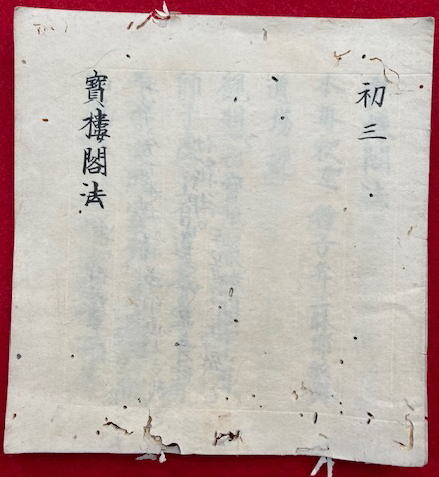 初三
寳樓閣法